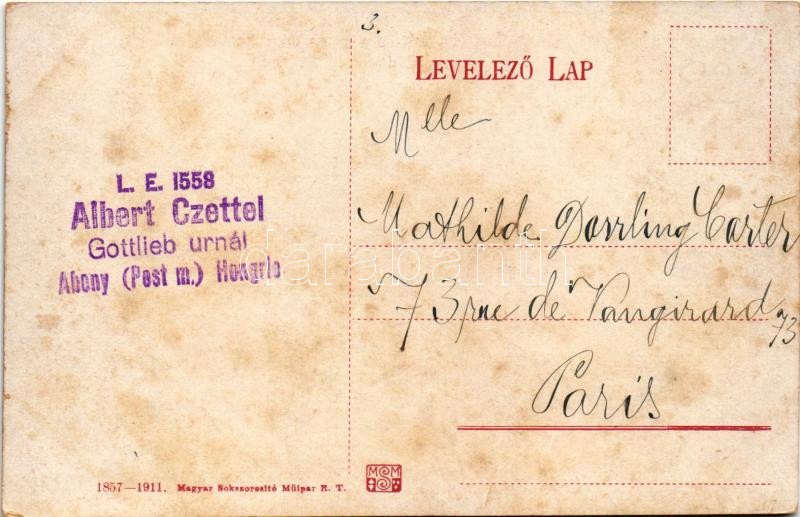 3.
LEVELEZŐ LAP
Mlle
L. E. 1558
Albert Czettel
Gottlieb urnál
Abony (Pest m.) Hongrie
Mathilde Dowling Carter
73 rue de Vangirard 73
Paris
darabanth
1857—1911. Magyar Sokszorosító Műipar R. T.
MSM